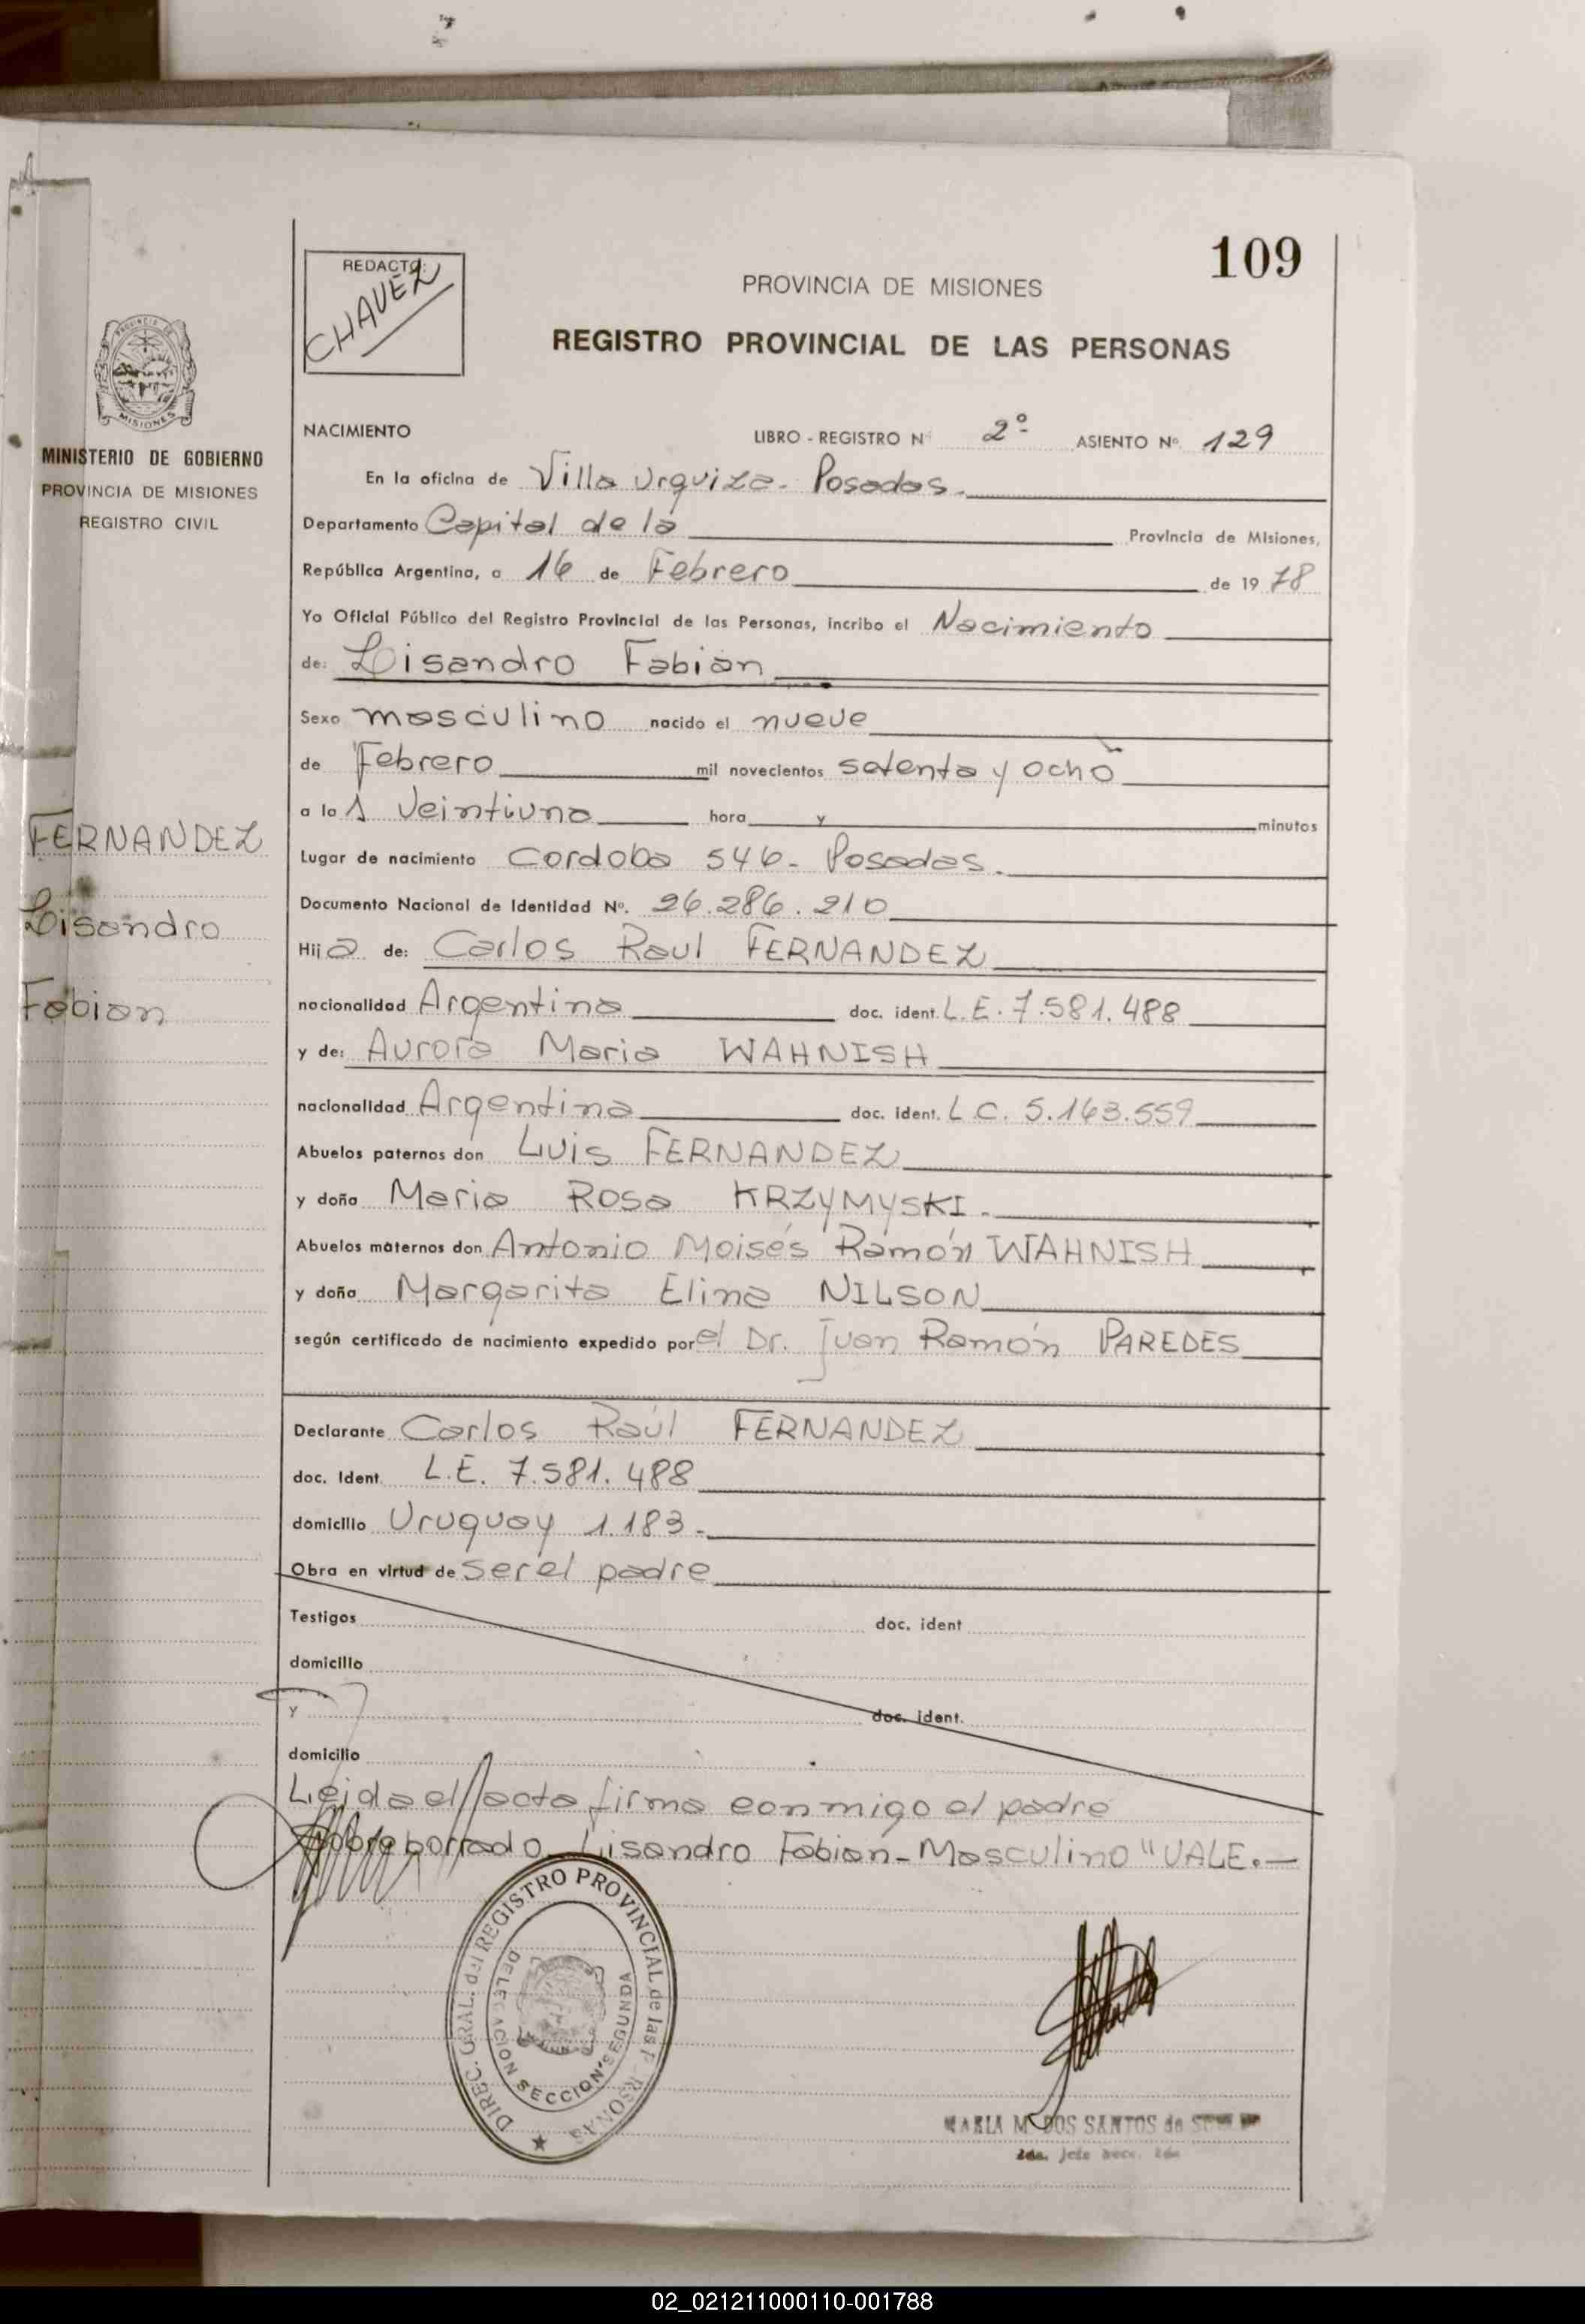 109
REDACTO:
CHAVEZ
PROVINCIA DE MISIONES
REGISTRO PROVINCIAL DE LAS PERSONAS
MISIONES
MINISTERIO DE GOBIERNO
PROVINCIA DE MISIONES
REGISTRO CIVIL
NACIMIENTO LIBRO - REGISTRO Nº 2º ASIENTO Nº 129
En la oficina de Villa Urquiza - Posadas.
Departamento Capital de la Provincia de Misiones,
República Argentina, a 16 de Febrero de 1978
Yo Oficial Público del Registro Provincial de las Personas, incribo el Nacimiento
de: Lisandro Fabián
Sexo masculino nacido el nueve
de Febrero mil novecientos setenta y ocho
a las veintiuna hora y minutos
FERNANDEZ
Lisandro
Fabian
Lugar de nacimiento Cordoba 546 - Posadas.
Documento Nacional de Identidad Nº. 26.286.210
Hijo de: Carlos Raul FERNANDEZ
nacionalidad Argentina doc. ident. L.E. 7.581.488
y de: Aurora Maria WAHNISH
nacionalidad Argentina doc. ident. L.C. 5.163.559
Abuelos paternos don Luis FERNANDEZ
y doña Maria Rosa KRZYMYSKI.
Abuelos maternos don Antonio Moisés Ramón WAHNISH
y doña Margarita Elina NILSON
según certificado de nacimiento expedido por el Dr. Juan Ramón PAREDES
Declarante Carlos Raúl FERNANDEZ
doc. Ident. L.E. 7.581.488
domicilio Uruguay 1.183.
Obra en virtud de ser el padre
Testigos doc. ident
domicilio
y doc. ident.
domicilio
Leida el acta firma conmigo el padre
Sobreborrado Lisandro Fabián - Masculino "VALE.-
DIREC. GRAL. del REGISTRO PROVINCIAL de las PERSONAS
DELEGACION SECCION SEGUNDA
MARIA M. DOS SANTOS de
02_021211000110-001788